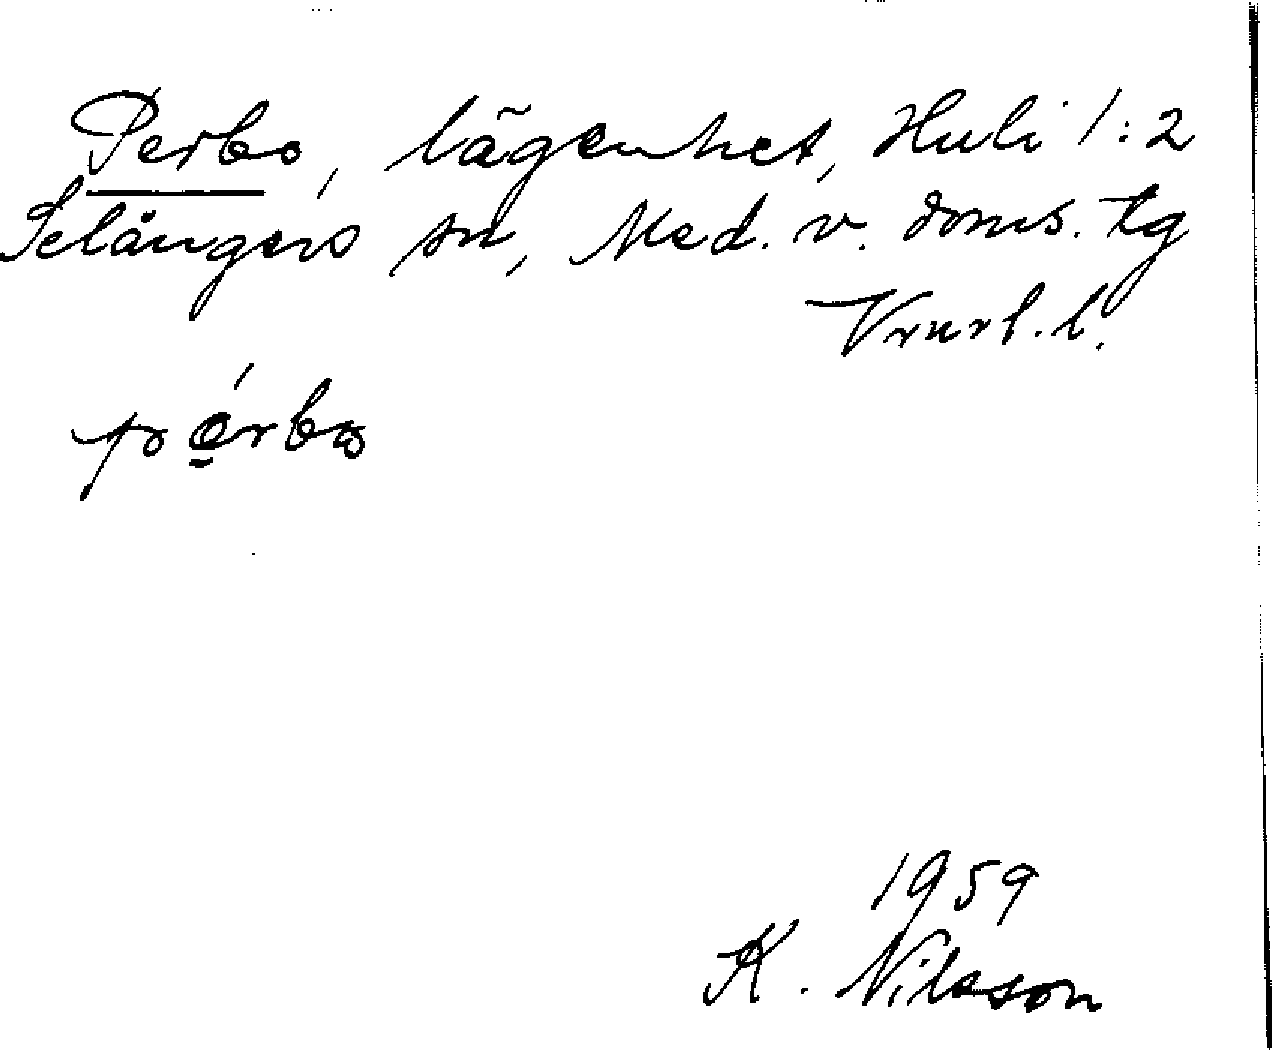 Perbo, lägenhet, Huli 1:2
Selångers sn, Med. v. doms. tg
Vrnrl. l.
pérbo
1959
K. Nilsson